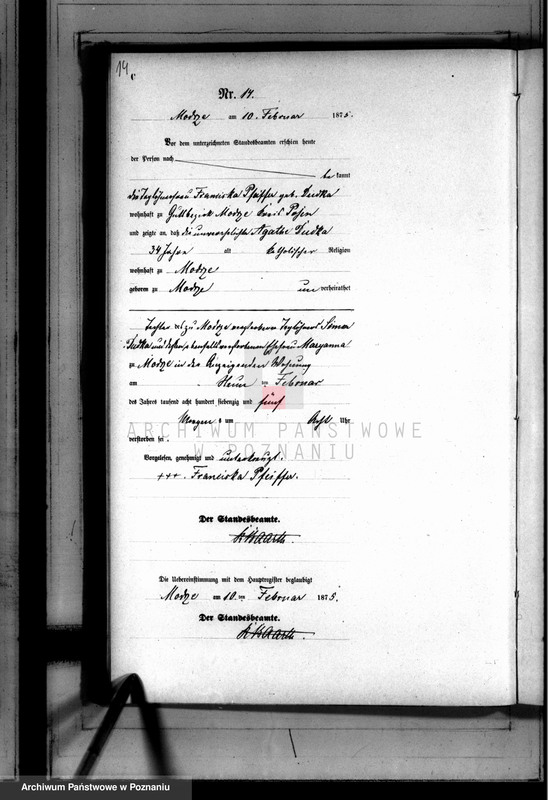 14
C
Nr. 14.
Modrze am 10. Februar 1875.
Vor dem unterzeichneten Standesbeamten erschien heute
der Person nach
be kannt
die Taglöhnerfrau Franciska Pfeiffer geb. Dudka
wohnhaft zu Gutsbezirk Modrze Kreis Posen
und zeigte an, daß die unverehelichte Agathe Dudka
34 Jahre alt katholischer Religion
wohnhaft zu Modrze
geboren zu Modrze un verheirathet
Tochter des zu Modrze verstorbenen Taglöhners Simon
Dudka und dessen ebenfalls verstorbenen Ehefrau Maryanna
zu Modrze in der Anzeigenden Wohnung
am Neun ten Februar
des Jahres tausend acht hundert siebenzig und fünf
Morgens um Acht Uhr
verstorben sei.
Vorgelesen, genehmigt und unterkreuzt.
+++. Franciska Pfeiffer.
Der Standesbeamte.
Die Uebereinstimmung mit dem Hauptregister beglaubigt
Modrze am 10. ten Februar 1875.
Der Standesbeamte.
ARCHIWUM PAŃSTWOWE
W POZNANIU
Archiwum Państwowe w Poznaniu